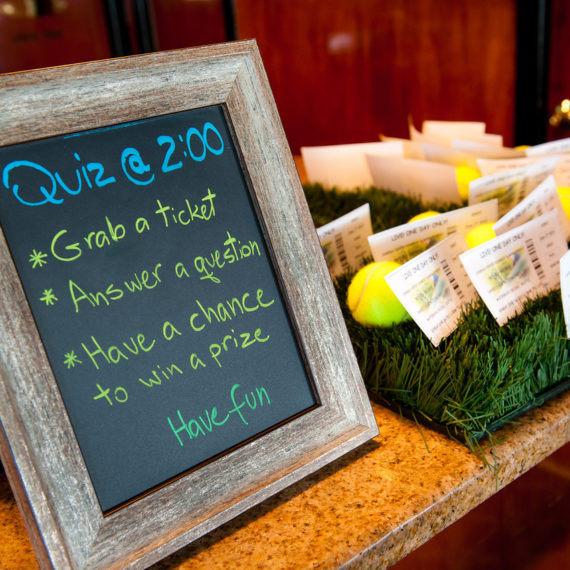 Quiz @ 2:00
* Grab a ticket
* Answer a question
* Have a chance
to win a prize
Have fun
LIVE ONE DAY ONLY
LIVE ONE DAY ONLY
LIVE ONE DAY ONLY